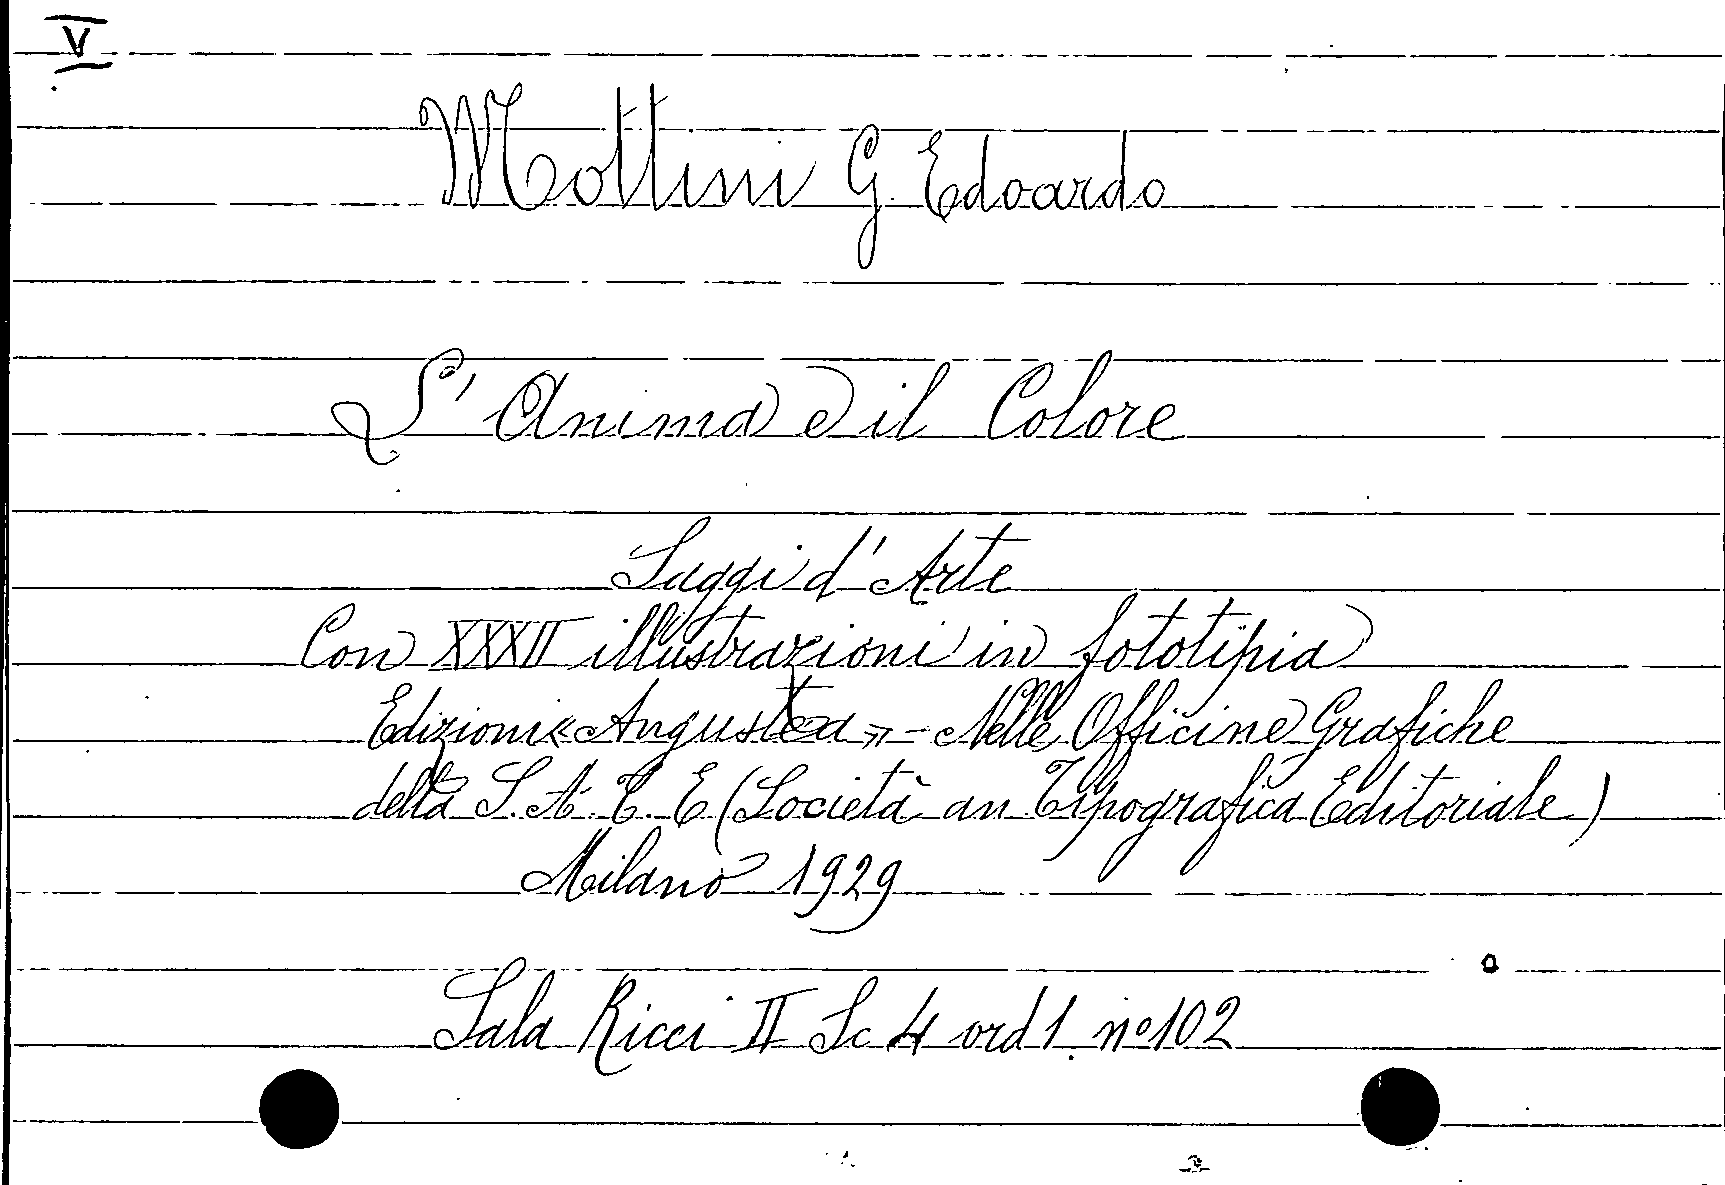 V
Mottini G. Edoardo
L' Anima e il Colore
Saggi d' Arte
Con XXXII illustrazioni in fototipia
Edizioni « Augustea » - Nelle Officine Grafiche
della S. A. T. E (Società an Tipografica Editoriale)
Milano 1929
Sala Ricci II Sc 4 ord 1. n° 102